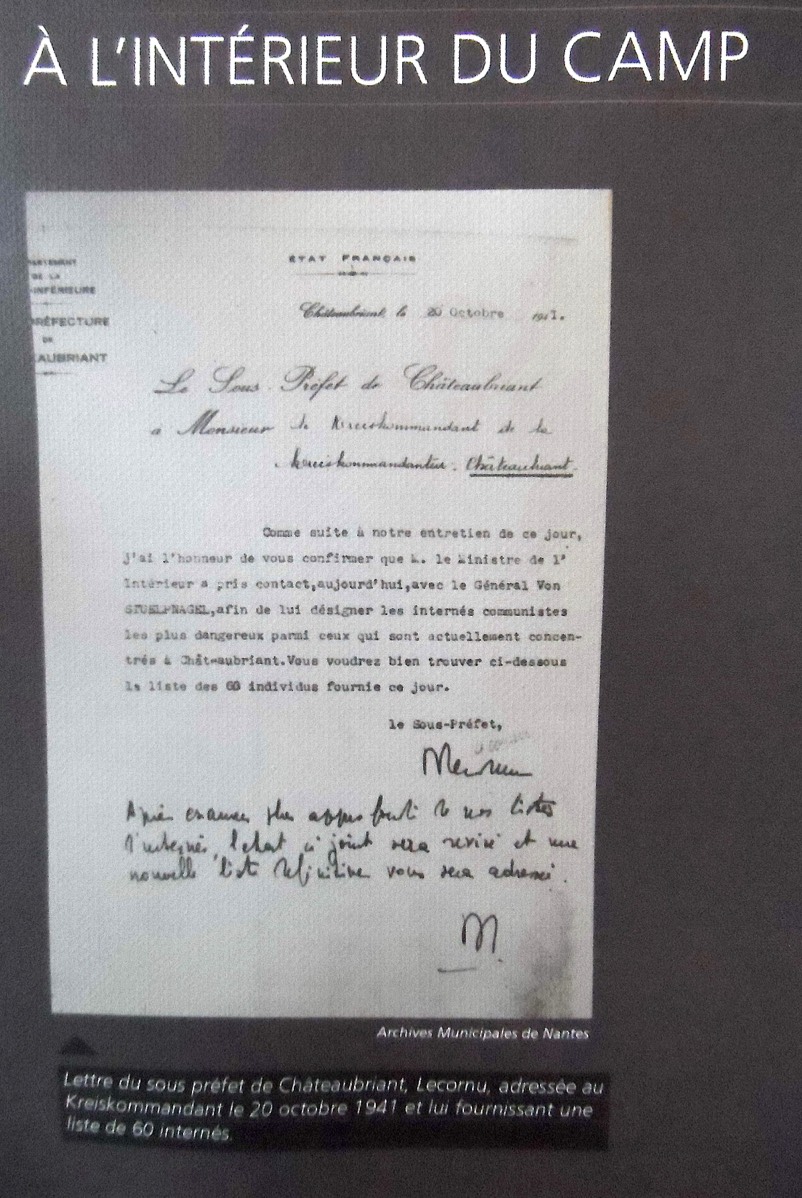 À L'INTÉRIEUR DU CAMP
ÉTAT FRANÇAIS
DE LA
-INFÉRIEURE
PRÉFECTURE
DE
AUBRIANT
Châteaubriant, le 20 Octobre 1941.
Le Sous-Préfet de Châteaubriant
à Monsieur le Kreiskommandant de la
Kreiskommandantur. Châteaubriant.
Comme suite à notre entretien de ce jour,
j'ai l'honneur de vous confirmer que M. le Ministre de l'
Intérieur a pris contact,aujourd'hui,avec le Général Von
STUELPNAGEL,afin de lui désigner les internés communistes
les plus dangereux parmi ceux qui sont actuellement concen-
trés à Châteaubriant.Vous voudrez bien trouver ci-dessous
la liste des 60 individus fournie ce jour.
le Sous-Préfet,
Après examen plus approfondi de nos listes
d'internés, l'état ci joint sera revisé et une
nouvelle liste définitive vous sera adressée.
Archives Municipales de Nantes
Lettre du sous préfet de Châteaubriant, Lecornu, adressée au
Kreiskommandant le 20 octobre 1941 et lui fournissant une
liste de 60 internés.